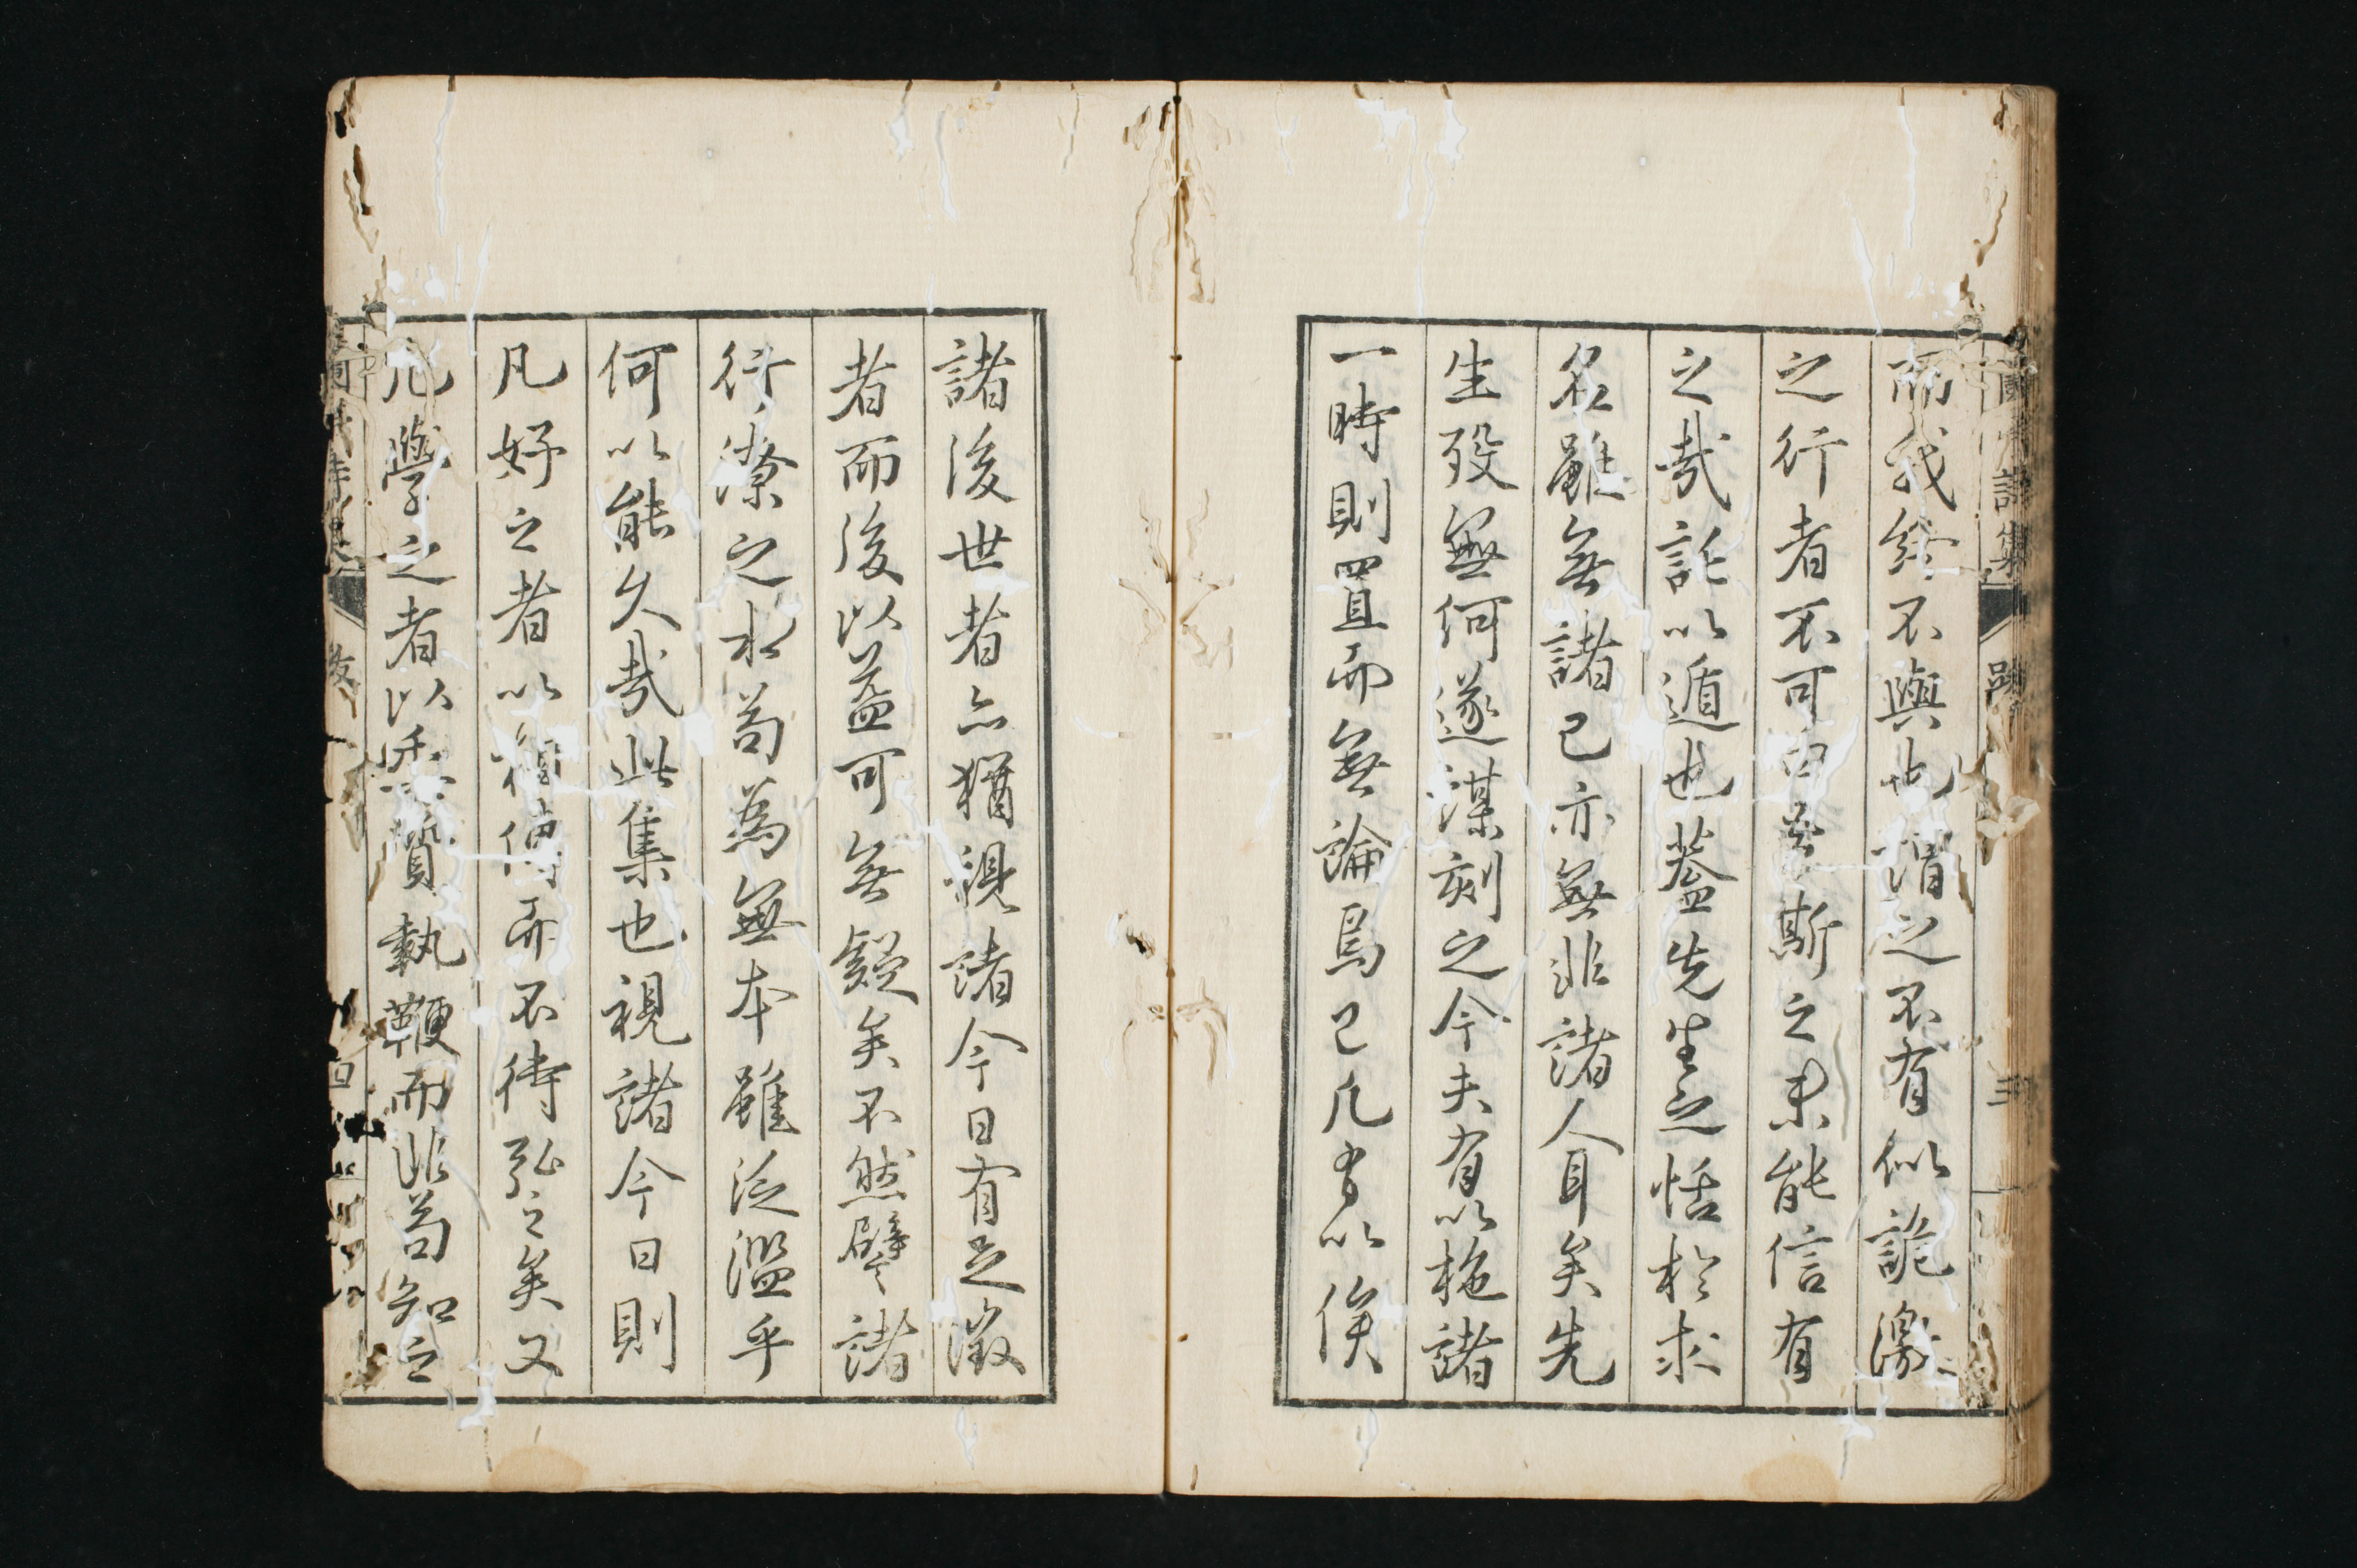 而我終不與也謂之不有似詭激
之行者不可白吾斯之未能信有
之哉託以遁也蓋先生之恬於求
名雖無諸已亦無非諸人耳矣先
生歿無何遂謀刻之今夫有以施諸
一時則置而無論焉已凡有以俟
諸後世者亦猶視諸今日有足徵
者而後以益可無疑矣不然譬諸
行潦之水苟為無本雖泛濫乎
何以能久哉此集也視諸今日則
凡好之者以相傳而不待弘之矣又
凡學之者以委質執鞭而非苟知之
詩集
跋
三